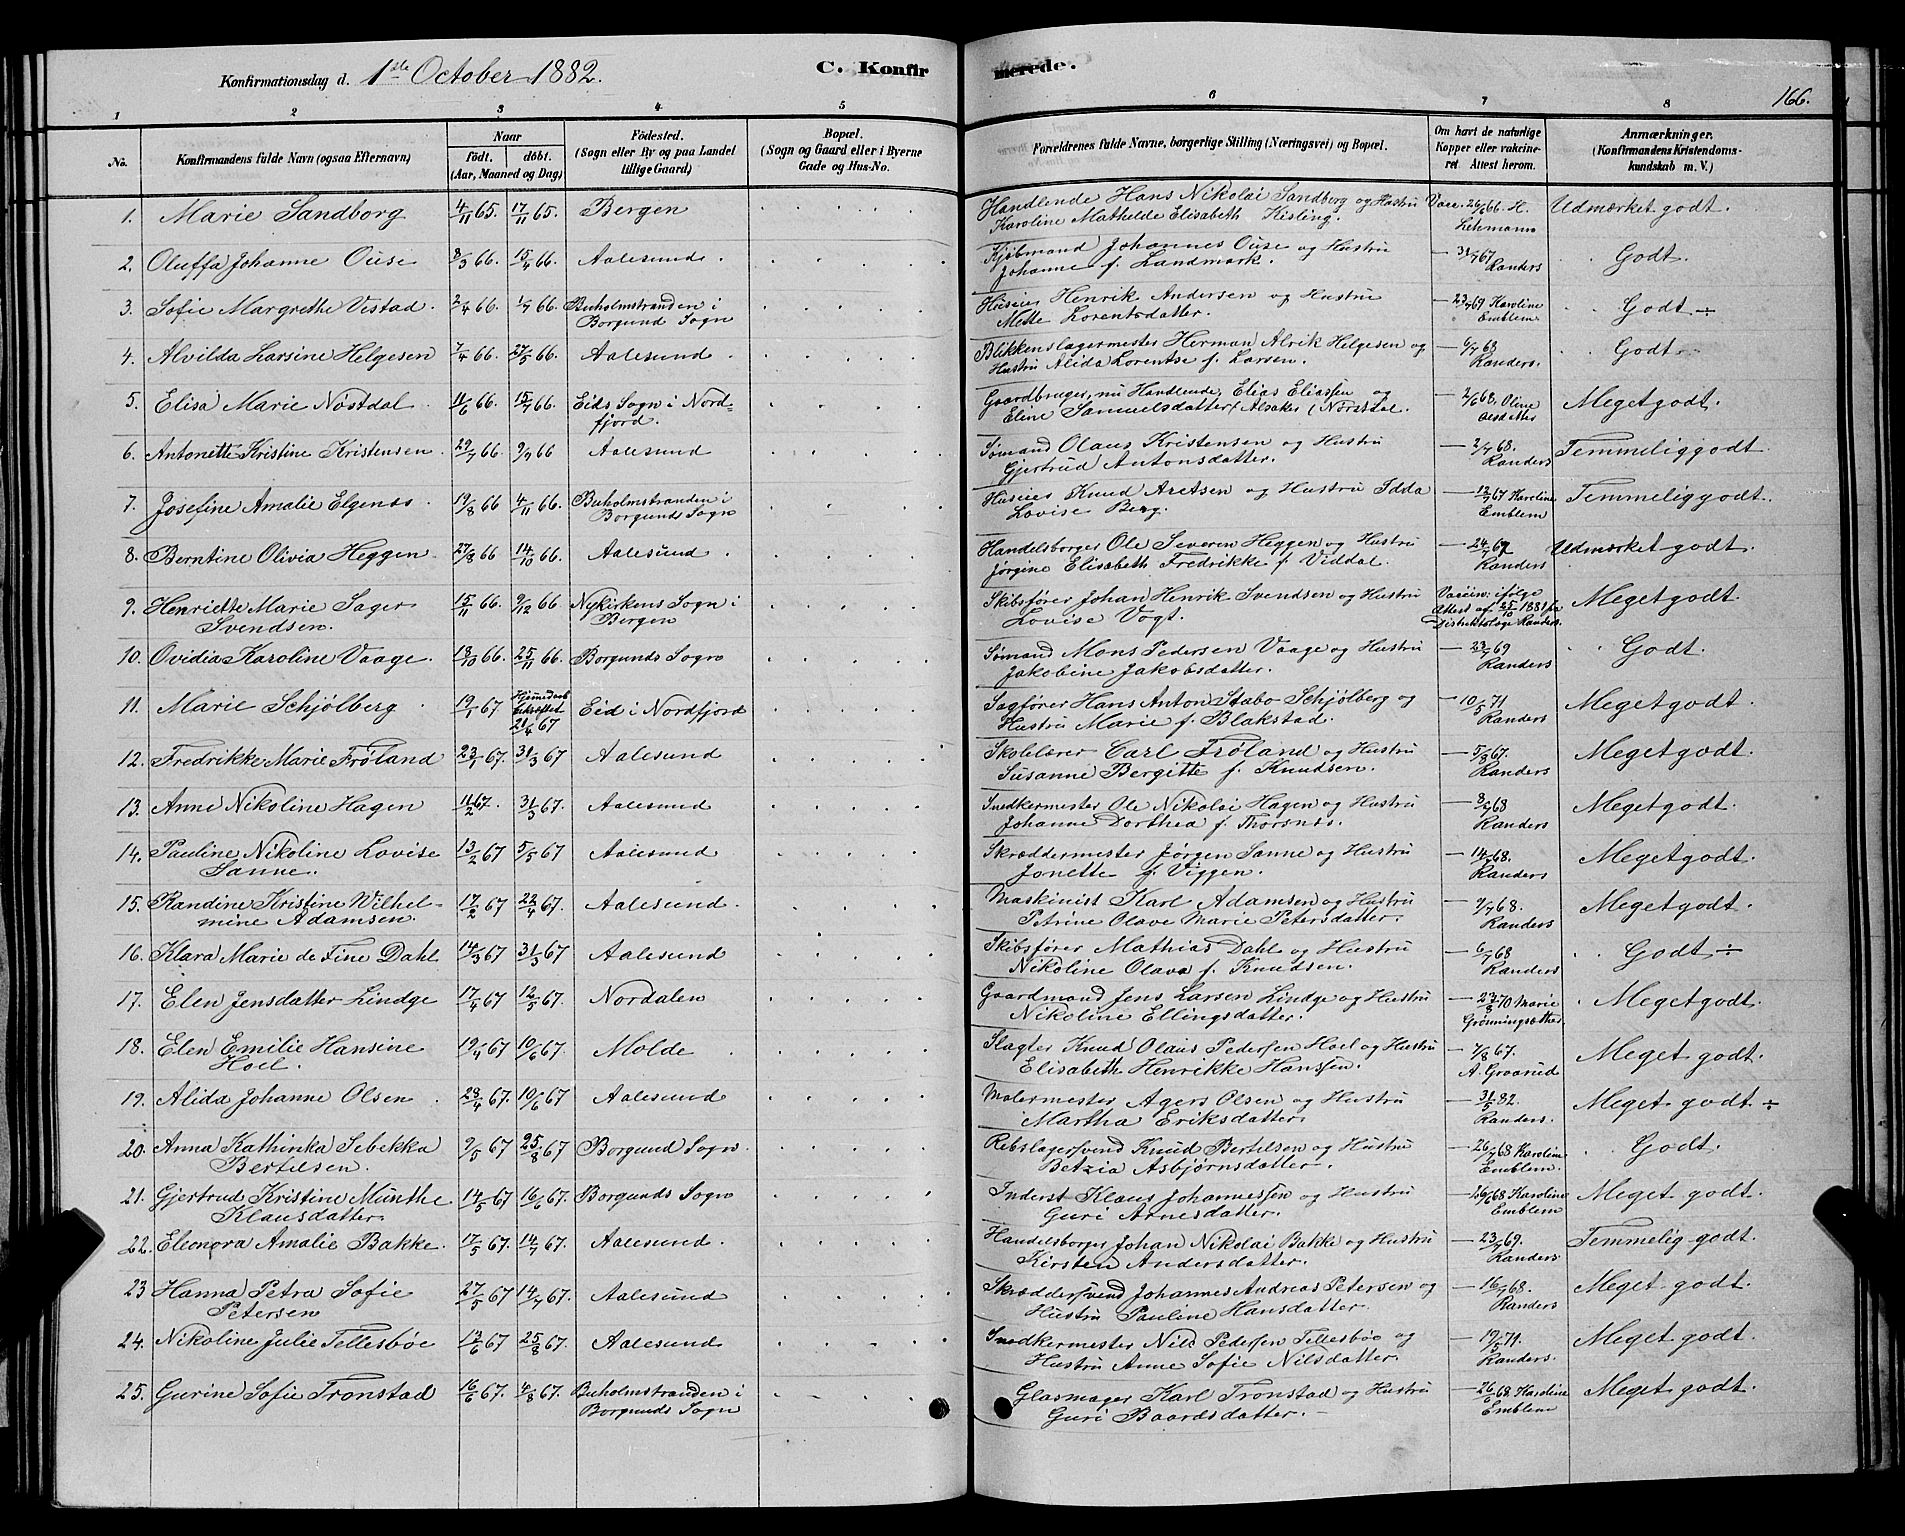 Konfirmationsdag d. 1ste October 1882.
C. Konfirmerede.
166.
1 2 3 4 5 6 7 8
No.
Konfirmandens fulde Navn (ogsaa Efternavn)
Naar
födt. döbt.
(Aar, Maaned og Dag)
Födested.
(Sogn eller By og paa Landet
tillige Gaard)
Bopæl.
(Sogn og Gaard eller i Byerne
Gade og Hus-No.
Forældrenes fulde Navne, borgerlige Stilling (Næringsvei) og Bopæl.
Om havt de naturlige
Kopper eller vakcine-
ret Attest herom.
Anmærkninger.
(Konfirmandens Kristendoms-
kundskab m. V.)
1. Marie Sandborg 4/11 65. 17/11 65. Bergen Handlende Hans Nikolai Sandberg og Hustru Vacc. 26/6 66. H. Udmærket godt.
Karoline Mathilde Elisabeth Kisling. Lehmann
2. Oluffa Johanne Ouse 8/3 66. 15/4 66. Aalesund. Kjøbmand Johannes Ouse og Hustru — 31/7 67 Godt.
Johanne f. Landmark. Randers
3. Sofie Margrethe Vestad. 2/4 66. 1/7 66. Buholmstranden i Huseier Henrik Andersen og Hustru — 23/7 69 Karoline Godt ÷
Borgund Sogn Mette Lorentsdatter. Emblem.
4. Alvilda Larsine Helgesen 7/4 66. 27/5 66. Aalesund Blikkenslagermester Herman Alrik Helgesen og — 6/7 68 Godt.
Hustru Alida Lorentse f. Larsen. Randers.
5. Elisa Marie Nøstdal 11/6 66. 15/7 66. Eids Sogn i Nord- Gaardbruger, nu Handlende, Elias Eliassen og — 2/6 68. Oline Meget godt.
fjord. Eline Samuelsdatter Olsdatter
6. Antonette Kristine Kristensen 29/7 66. 9/9 66 Aalesund Sømand Olaus Kristensen og Hustru — 2/7 68. Temmelig godt
Gjertrud Antonsdatter. Randers
7. Josefine Amalie Elgenes. 19/8 66 4/11 66. Buholmstranden i Huseier Knud Aretsen og Hustru Idda — 12/7 67 Karoline Temmelig godt.
Borgunds Sogn Lovise Berg. Emblem
8. Berntine Olivia Heggen 27/8 66 14/10 66. Aalesund Handelsborger Ole Severin Heggen og Hustru — 24/7 67 Udmærket godt.
Jørgine Elisabeth Fredrikke f. Viddal. Randers
9. Henriette Marie Sager 15/11 66. 9/12 66 Nykirkens Sogn i Skibsfører Johan Henrik Svendsen og Hustru Vaccin. ifølge Meget godt.
Svendsen. Bergen Lovise Vogt. Attest af 25/10 1881 fra
Distriktslæge Randers.
10. Ovidia Karoline Vaage. 18/10 66. 25/11 66. Borgunds Sogn Sømand Mons Pedersen Vaage og Hustru — 23/7 69 Godt.
Jakobine Jakobsdatter. Randers
11. Marie Schjølberg 19/1 67 Hjemmedøbt
bekræftet
21/4 67 Eid i Nordfjord Sagfører Hans Anton Stabo Schjølberg og — 10/5 71 Meget godt.
Hustru Marie f. Blakstad. Randers
12. Fredrikke Marie Frøland 23/1 67. 31/3 67 Aalesund Skolelærer Carl Frøland og Hustru — 5/8 67. Meget godt.
Susanne Bergitte f. Knudsen. Randers
13. Anne Nikoline Hagen 11/2 67. 31/3 67. Aalesund Snedkermester Ole Nikolai Hagen og Hustru — 8/7 68 Meget godt.
Johanne Dorthea f. Thorsnes. Randers
14. Pauline Nikoline Lovise 13/2 67 5/5 67 Aalesund Skræddermester Jørgen Sanne og Hustru — 14/7 68. Meget godt.
Sanne. Jonette f. Viggen. Randers
15. Randine Kristine Wilhel- 17/2 67 22/4 67. Aalesund. Maskinist Karl Adamsen og Hustru 9/7 68. Meget godt.
mine Adamsen. Petrine Olave Marie Petersdatter. Randers
16. Klara Marie de Fine Dahl 14/3 67 31/3 67 Aalesund Skibsfører Mathias Dahl og Hustru — 6/7 68 Godt ÷
Nikoline Olava f. Knudsen. Randers
17. Elen Jensdatter Lindge 17/4 67 12/5 67. Nordalen Gaardmand Jens Larsen Lindge og Hustru — 23/8 70 Marie Meget godt.
Nikoline Ellingsdatter. Grønningsæther
18. Elen Emilie Hansine 19/4 67 10/6 67. Molde Slagter Knud Olaus Pedersen Hoel og Hustru — 7/8 67. Meget godt.
Hoel. Elisabeth Henrikke Hanssen. A. Graarud
19. Alida Johanne Olsen 28/4 67. 10/6 67 Aalesund Malermester Agers Olsen og Hustru — 31/5 82. Meget godt ÷
Martha Eriksdatter. Randers.
20. Anna Kathinka Sebekka 9/5 67 25/8 67 Borgund Sogn Rebslagersvend Knud Bertelsen og Hustru — 26/7 68 Karoline Godt.
Bertelsen. Betzia Asbjørnsdatter. Emblem.
21. Gjertrud Kristine Munthe 14/5 67 16/6 67. Borgunds Sogn Inderst Klaus Johannessen og Hustru — 26/6 68 Karoline Meget godt.
Klausdatter. Guri Arnesdatter. Emblem
22. Eleonora Amalie Bakke. 17/5 67. 14/7 67. Aalesund. Handelsborger Johan Nikolai Bakke og Hustru — 23/7 69. Temmelig godt.
Kirsten Andersdatter. Randers.
23 Hanna Petra Sofie 27/5 67 14/7 67. Aalesund Skræddersvend Johannes Andreas Petersen og — 16/7 68. Meget godt
Petersen Hustru Pauline Hansdatter. Randers
24. Nikoline Julie Tellesbøe 13/6 67 25/8 67. Aalesund Snedkermester Nils Pedersen Tellesbøe og — 19/5 71. Meget godt.
Hustru Anne Sofie Nilsdatter. Randers.
25. Gurine Sofie Tronstad 16/6 67. 4/8 67. Buholmstranden i Glasmager Karl Tronstad og Hustru — 26/6 68 Karoline Meget godt.
Borgunds Sogn Guri Baardsdatter. Emblem